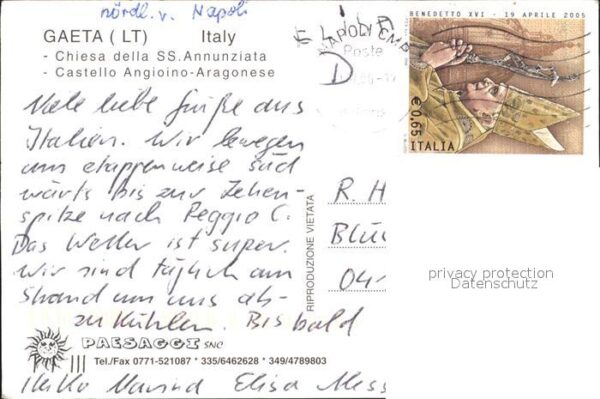 nördl. v. Napoli
GAETA ( LT) Italy
- Chiesa della SS. Annunziata
- Castello Angioino-Aragonese
NAPOLI CMP
Poste
BENEDETTO XVI - 19 APRILE 2005
€ 0,65
ITALIA
Viele liebe Grüße aus
Italien. Wir bewegen
uns etappenweise süd
wärts bis zur Zehen-
spitze nach Reggio C.
Das Wetter ist super.
Wir sind täglich am
Strand um uns ab-
zukühlen. Bis bald
R. H
Blu
04-
RIPRODUZIONE VIETATA
privacy protection
Datenschutz
PAESAGGI SNC
Tel./Fax 0771-521087 * 335/6462628 * 349/4789803
Elisa